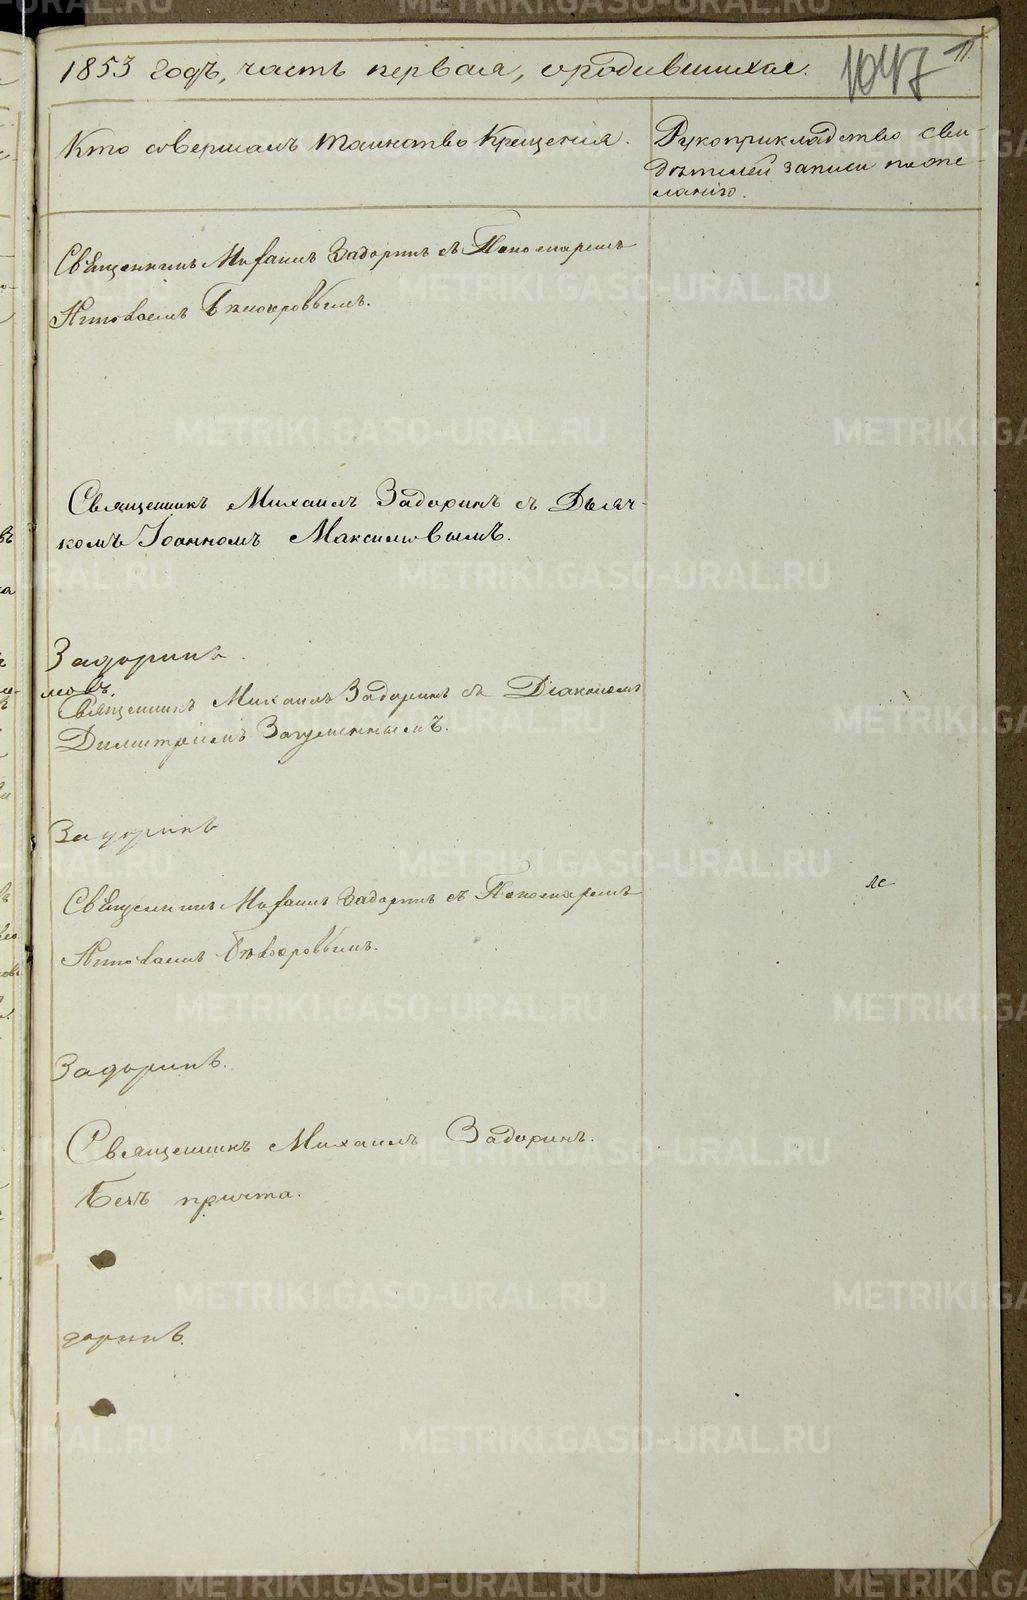 1853 годъ, часть первая, о родившихся.
1047
11.
Кто совершалъ таинство крещенія.
Рукоприкладство сви-
дѣтелей записи по же
ланію.
Священникъ Михаилъ Задоринъ съ Пономаремъ
Николаемъ
Священникъ Михаилъ Задоринъ съ Дьяч-
комъ Іоанномъ Максимовымъ.
Задоринъ.
Священникъ Михаилъ Задоринъ съ Діакономъ
Димитріемъ
Задоринъ
Священникъ Михаилъ Задоринъ съ Пономаремъ
Николаемъ
Задоринъ.
Священникъ Михаилъ Задоринъ.
Безъ причта.
доринъ.
METRIKI.GASO-URAL.RU